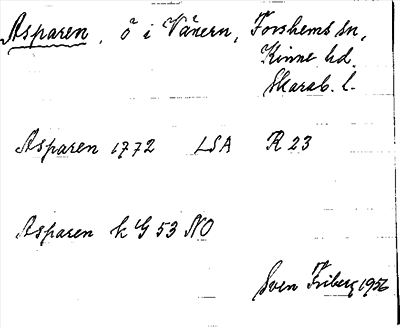 Asparen, ö i Vänern, Forshems sn,
Kinne hd.
Skarab. l.
Asparen 1772 LSA R 23
Asparen k G 53 NO
Sven Friberg 1956